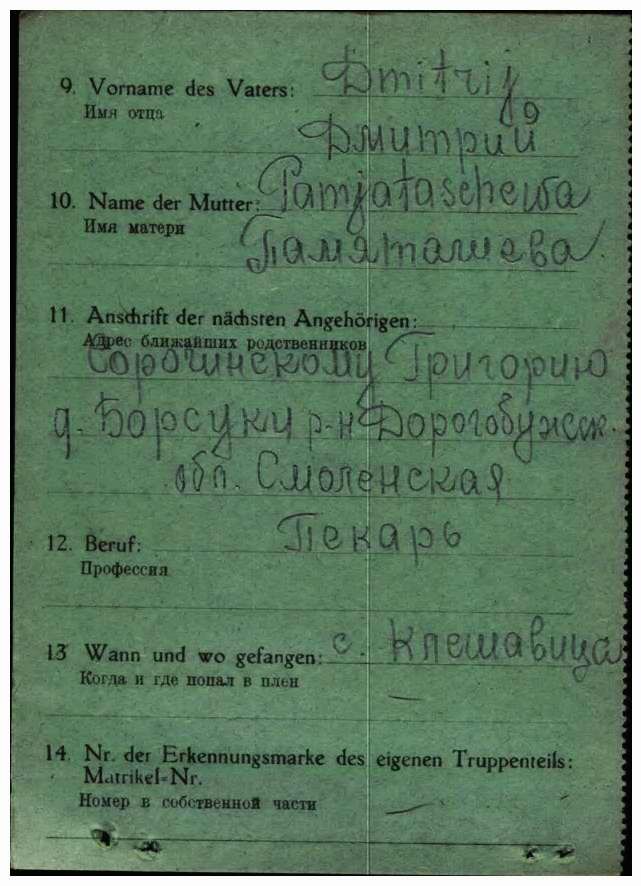 9. Vorname des Vaters: Dmitrij
Имя отца
Дмитрий
10. Name der Mutter: Pamjataschewa
Имя матери
Памяташева
11. Anschrift der nächsten Angehörigen:
Адрес ближайших родственников
Сорочинскому Григорию
д. Борсуки р-н Дорогобужск.
обл. Смоленская
12. Beruf: Пекарь
Профессия
13 Wann und wo gefangen: с. Клешавица
Когда и где попал в плен
—
14. Nr. der Erkennungsmarke des eigenen Truppenteils:
Matrikel-Nr.
Номер в собственной части —